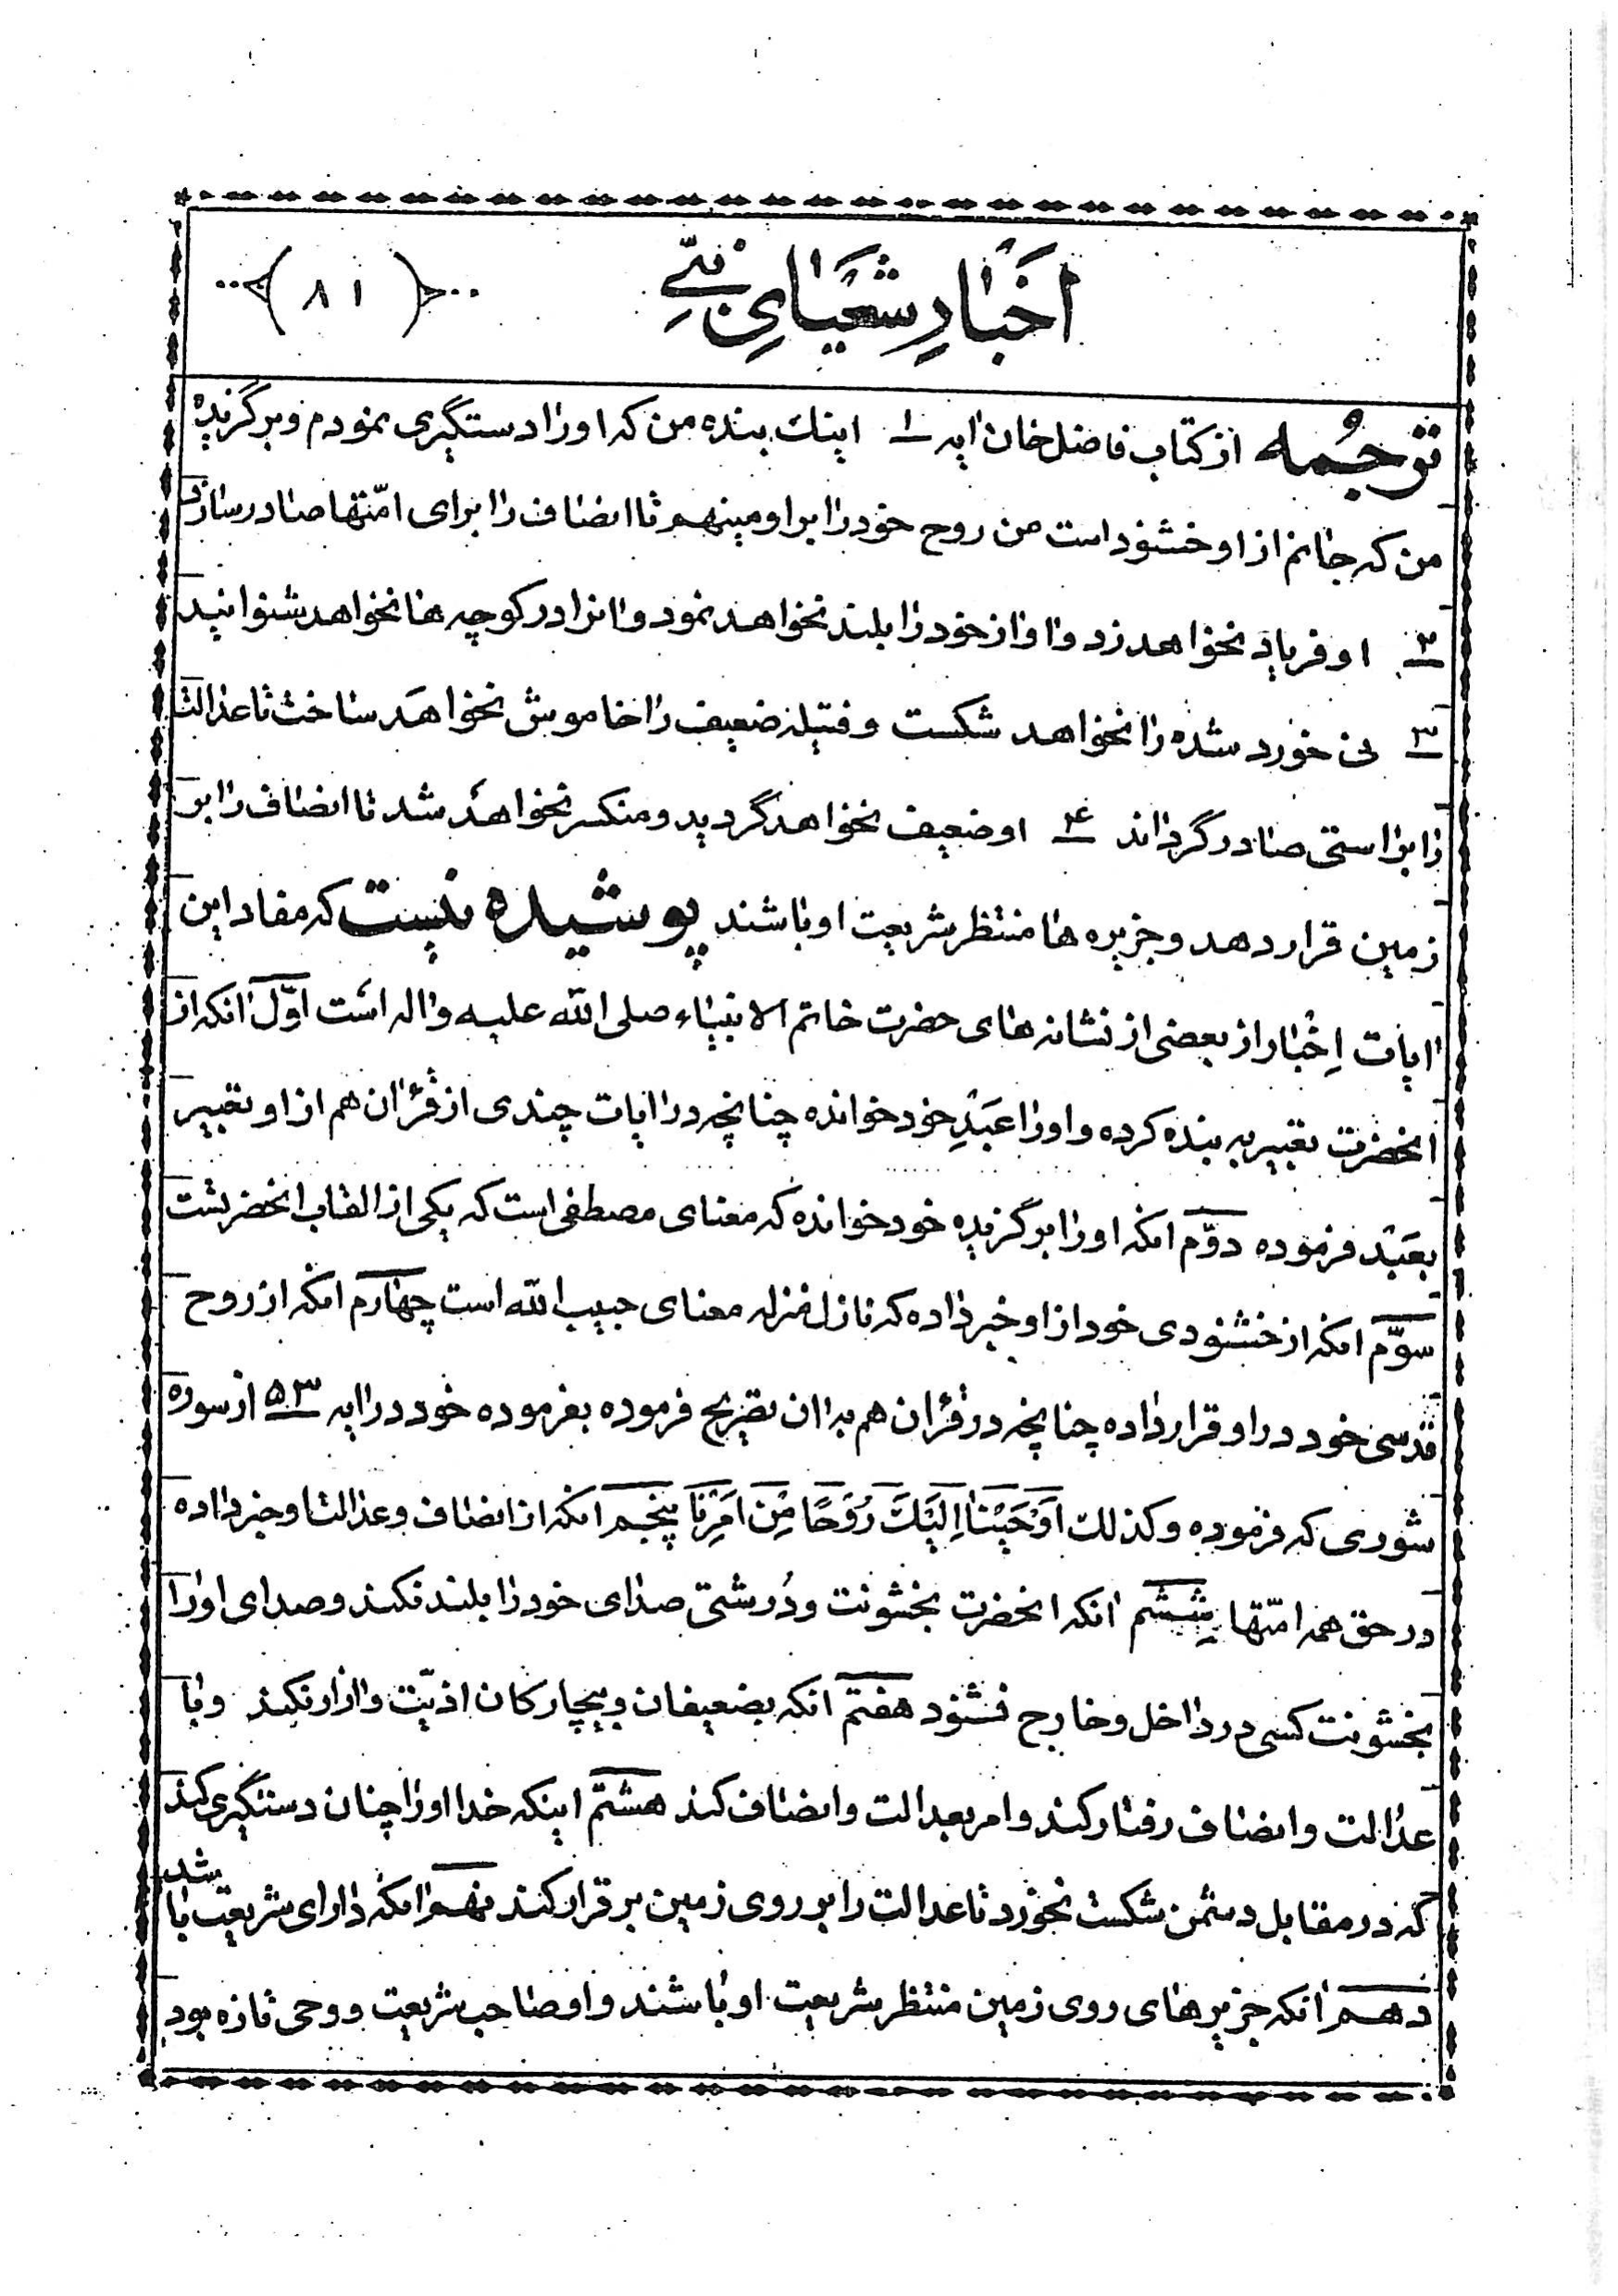 اَخبارِ شَعیَایِ نَبِیّ
(۸۱)
تَوجُمه از کتاب فاضل خان ایه ۱ اینك بنده من که اورا دستگیری نمودم و برگزیده
من که جانم از او خشنود است من روح خود را بر او مینهم تا انصاف را برای امّتها صادر سازد
۲ او فریاد نخواهد زد و اواز خود را بلند نخواهد نمود و انرا در کوچه ها نخواهد شنوانید
۳ نی خورد شده را نخواهد شکست و فتیله ضعیف را خاموش نخواهَد ساخت تا عدالت
را براستی صادر گرداند ۴ او ضعیف نخواهد گردید و منکسر نخواهَد شد تا انصاف را بر
زمین قرار دهد و جزیره ها منتظر شریعت او باشند پوشیده نیست که مفاد این
ایات اِخبار از بعضی از نشانه های حضرت خاتم الانبیاء صلی الله علیه واله است اوّل انکه از
انحضرت تعبیر به بنده کرده و اورا عَبدِ خود خوانده چنانچه در ایات چندی از قُران هم از او تعبیر
بعَبد فرموده دوّم انکه اورا برگزیده خود خوانده که معنای مصطفی است که یکی از القاب انحضرتست
سوّم انکه از خشنودی خود از او خبر داده که نازل منزله معنای حبیب الله است چهارم انکه از روح
قدسی خود در او قرار داده چنانچه در قران هم به ان تصریح فرموده بفرموده خود در ایه ۵۳ از سوره
شوری که فرموده وکذلك اَوحَینا اِلَیكَ رُوحًا مِن اَمرِنا پنجم انکه از انصاف و عدالت او خبر داده
در حق همه امّتها ششم انکه انحضرت بخشونت و دُرشتی صدای خود را بلند نکند و صدای اورا
بخشونت کسی در داخل و خارج نشنود هفتم انکه بضعیفان و بیچارکان اذیّت و ازار نکند و با
عدالت و انصاف رفتار کند و امر بعدالت و انصاف کند هشتم اینکه خدا اورا چنان دستگیری کند
که در مقابل دشمن شکست نخورد تا عدالت را بر روی زمین بر قرار کند نهم انکه دارای شریعت باشد
دهم انکه جزیرهای روی زمین منتظر شریعت او باشند و او صاحب شریعت و وحی تازه بود